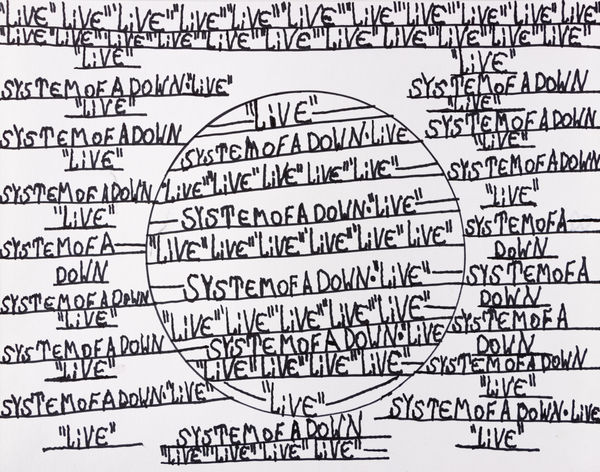 "LiVE" "LiVE" "LiVE" "LiVE" "LiVE" "LiVE" "LiVE" "LiVE" "LiVE" "LiVE" "LiVE" "LiVE" "LiVE"
"LiVE" "LiVE" "LiVE" "LiVE" "LiVE" "LiVE" "LiVE" "LiVE" "LiVE" "LiVE" "LiVE" "LiVE" "LiVE"
"LiVE"
SYSTEMOFADOWN·"LiVE"
"LiVE"
SYSTEMOFADOWN
"LiVE"
SYSTEMOFADOWN
"LiVE"
SYSTEMOFA
DOWN
SYSTEMOFADOWN
"LiVE"
SYSTEMOFADOWN
"LiVE"
SYSTEMOFADOWN·"LiVE"
"LiVE"
"LiVE"
SYSTEMOFADOWN·LiVE
"LiVE" "LiVE" "LiVE" "LiVE" "LiVE"
SYSTEMOFADOWN·"LiVE"
"LiVE" "LiVE" "LiVE" "LiVE" "LiVE" "LiVE"
SYSTEMOFADOWN·"LiVE"
"LiVE" "LiVE" "LiVE" "LiVE" "LiVE"
SYSTEMOFADOWN·"LiVE
"LiVE" "LiVE" "LiVE" "LiVE"
"LiVE"
SYSTEMOFADOWN
"LiVE" "LiVE" "LiVE" "LiVE" "LiVE"
"LiVE"
SYSTEMOFADOWN
"LiVE"
SYSTEMOFADOWN
"LiVE"
SYSTEMOFADOWN
"LiVE"
SYSTEMOFA
DOWN
SYSTEMOFA
DOWN
SYSTEMOFA
DOWN
SYSTEMOFADOWN
"LiVE"
SYSTEMOFADOWN·LiVE
"LiVE"